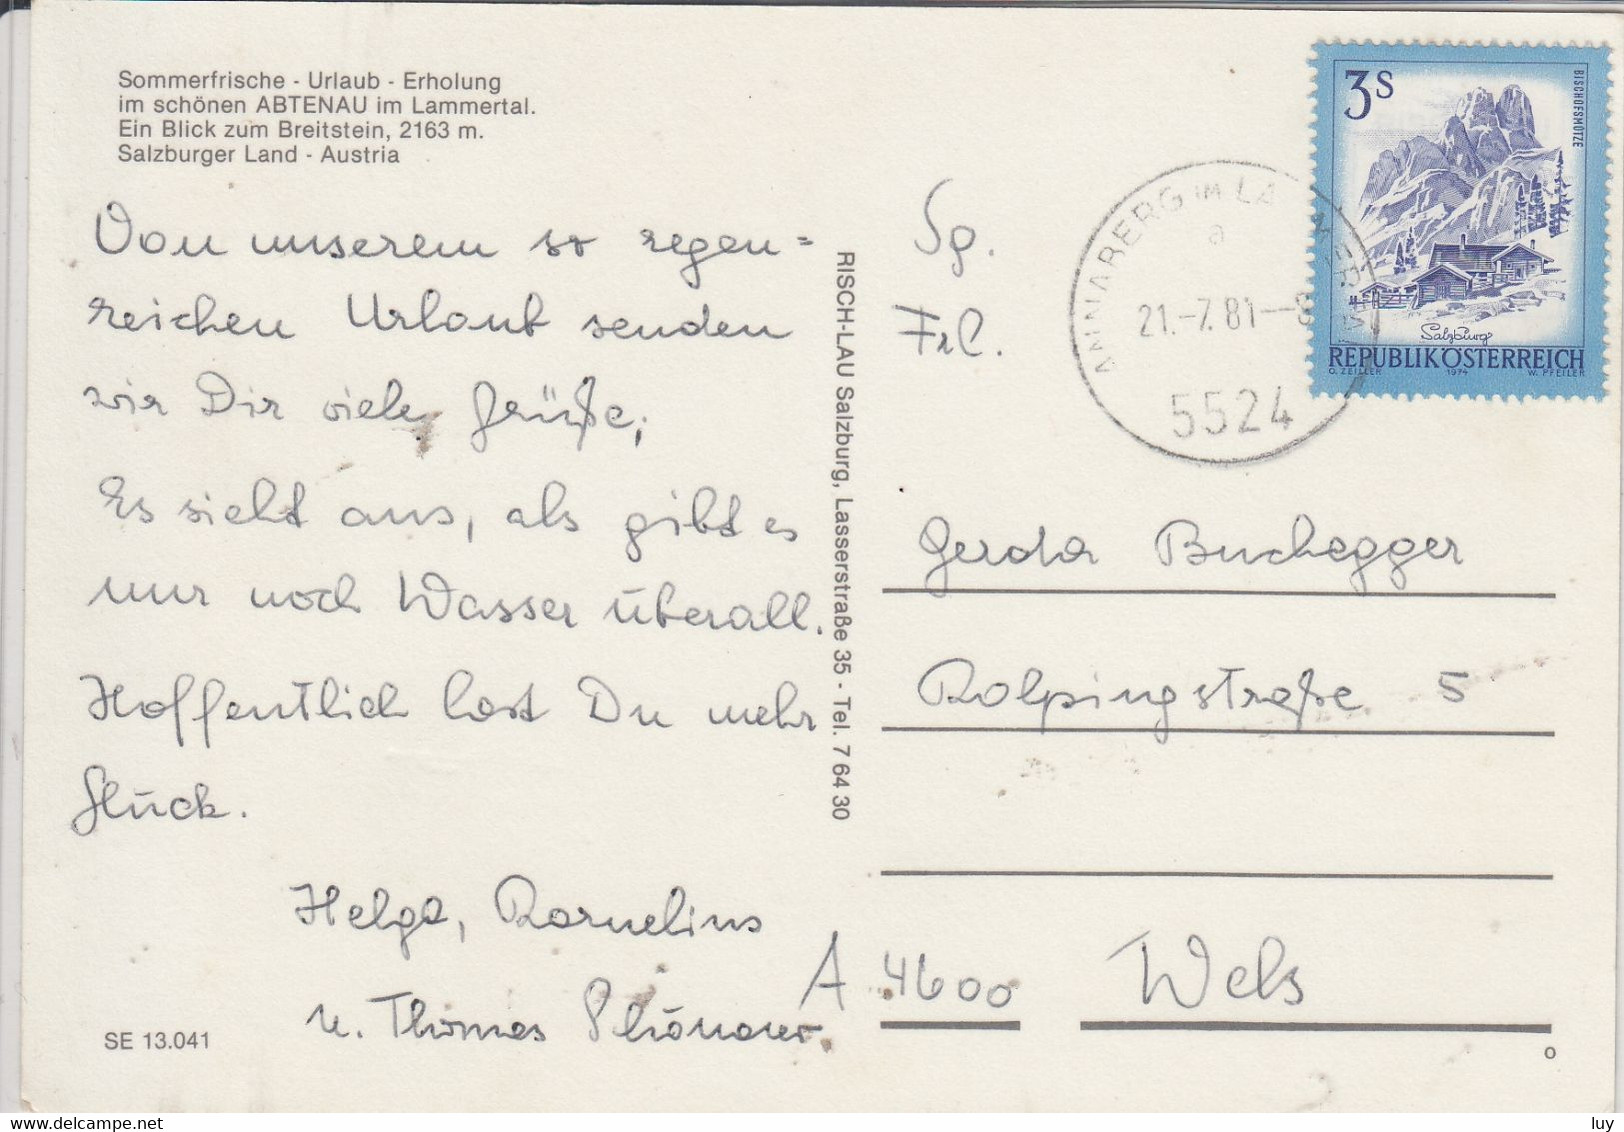 Sommerfrische - Urlaub - Erholung
im schönen ABTENAU im Lammertal.
Ein Blick zum Breitstein, 2163 m.
Salzburger Land - Austria
Von unserem so regen=
reichen Urlaub senden
wir Dir viele Grüße,
Es sieht aus, als gibt es
nur noch Wasser überall.
Hoffentlich hast Du mehr
Glück.
Helga, Kornelius
u. Thomas
SE 13.041
RISCH-LAU Salzburg, Lasserstraße 35 - Tel. 7 64 30
Sp.
Frl.
ANNABERG IM LAMMERTAL
a
21.-7.81--8
5524
3S
BISCHOFSMÜTZE
Salzburg
REPUBLIK ÖSTERREICH
O. ZEILLER 1974 W. PFEILER
Gerda Buchegger
Kolpingstraße 5
A 4600 Wels
o
luy